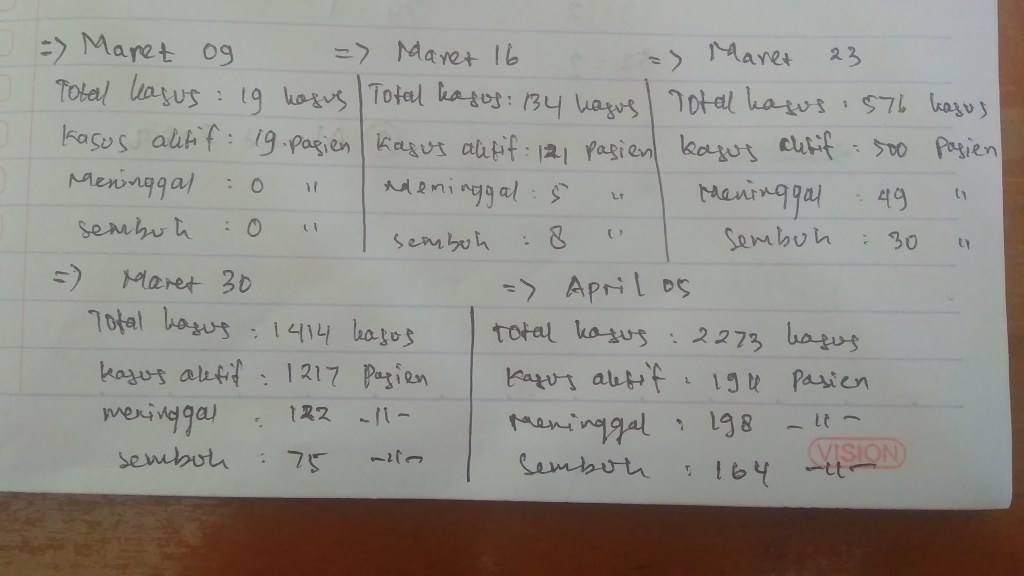 => Maret 09 => Maret 16 => Maret 23
Total kasus : 19 kasus Total kasus : 134 kasus Total kasus : 576 kasus
Kasus aktif : 19 pasien Kasus aktif : 121 pasien Kasus aktif : 500 Pasien
Meninggal : 0 " Meninggal : 5 " Meninggal : 49 "
Sembuh : 0 " Sembuh : 8 " Sembuh : 30 "
=> Maret 30 => April 05
Total kasus : 1414 kasus Total kasus : 2273 kasus
Kasus aktif : 1217 Pasien Kasus aktif : Pasien
meninggal : 122 -"- Meninggal : 198 -"-
sembuh : 75 -"- Sembuh : 164 -"-
VISION